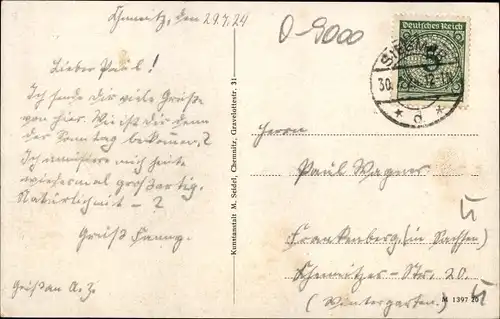 Chemnitz, den 29.7.24
Lieber Paul!
Ich sende dir viele Grüße
von hier. Wie ist dir denn
der Sonntag bekommen?
Ich amüsiere mich heute
wiedermal großartig.
Natürlich mit - ?
Gruß Fanny.
Gruß an A. Z.
Kunstanstalt M. Seidel, Chemnitz, Gravelottestr. 31
O-9000
Deutsches Reich
5
30.
* d *
Herrn
Paul Wagner
Frankenberg (in Sachsen)
Chemnitzer-Str. 20.
(Wintergarten.)
M 1397 25